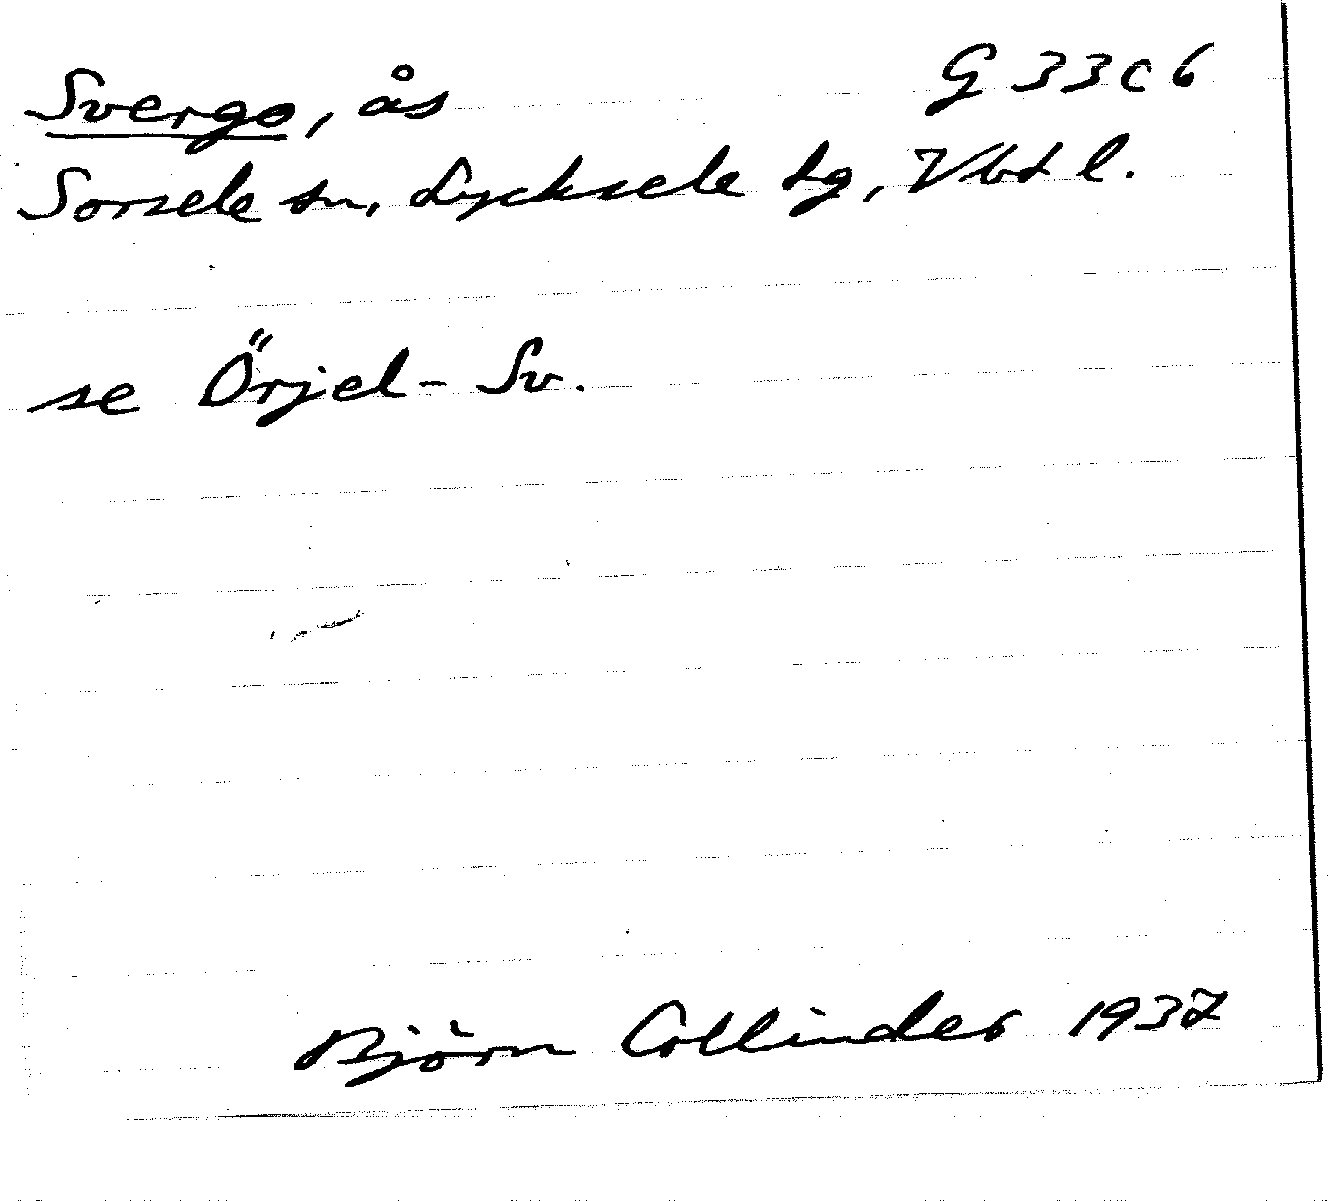 Svergo, ås G 33 c 6
Sorsele sn, Lycksele tg, Vbt l.
se Örjel-Sv.
Björn Collinder 1937